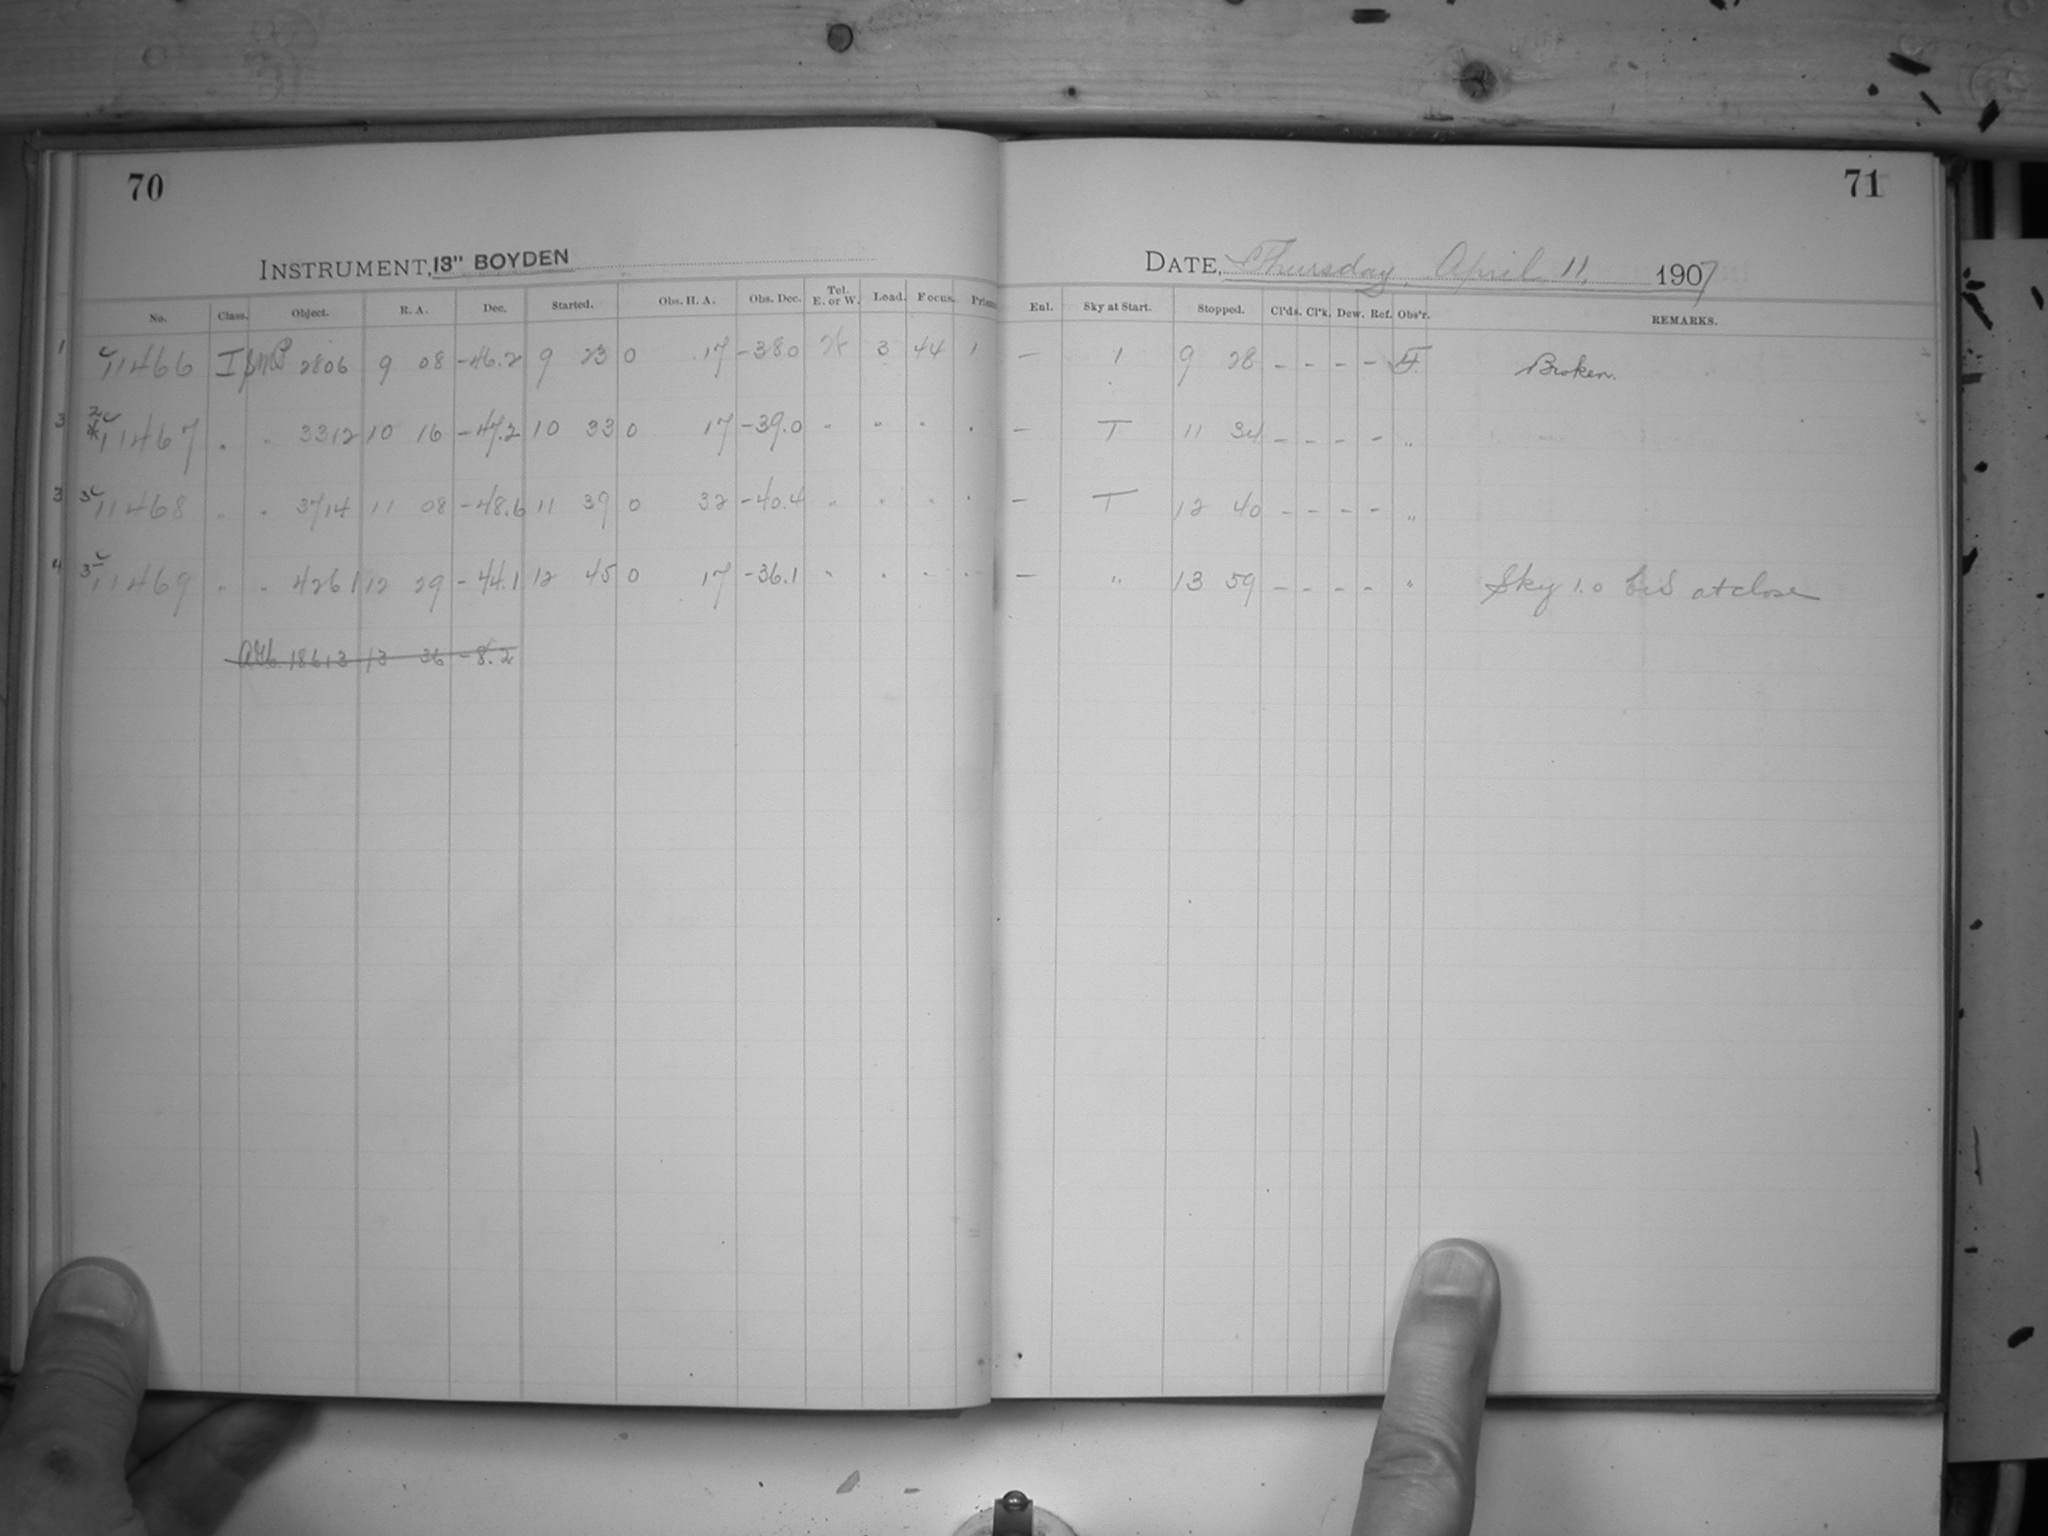 70
71
INSTRUMENT, 13" BOYDEN
DATE, Thursday, April 11, 1907
No. Class. Object. R. A. Dec. Started. Obs. H. A. Obs. Dec. Tel. E. or W. Load. Focus. Prism Enl. Sky at Start. Stopped. Cl'ds. Cl'k. Dew. Ref. Obs'r. REMARKS.
1 11466 I 2806 9 08 -46.2 9 23 0 17 -38.0 3 44 1 — 1 9 28 - - - - Broken.
3 2 11467 " " 3312 10 16 -47.2 10 33 0 17 -39.0 " " " " — T 11 34 - - - - "
3 3 11468 " " 3714 11 08 -48.6 11 39 0 32 -40.4 " " " " — T 12 40 - - - - "
4 3 11469 " " 4261 12 29 -44.1 12 45 0 17 -36.1 " " " " — " 13 59 - - - - " Sky 1.0 at close
18613 13 36 -8.2